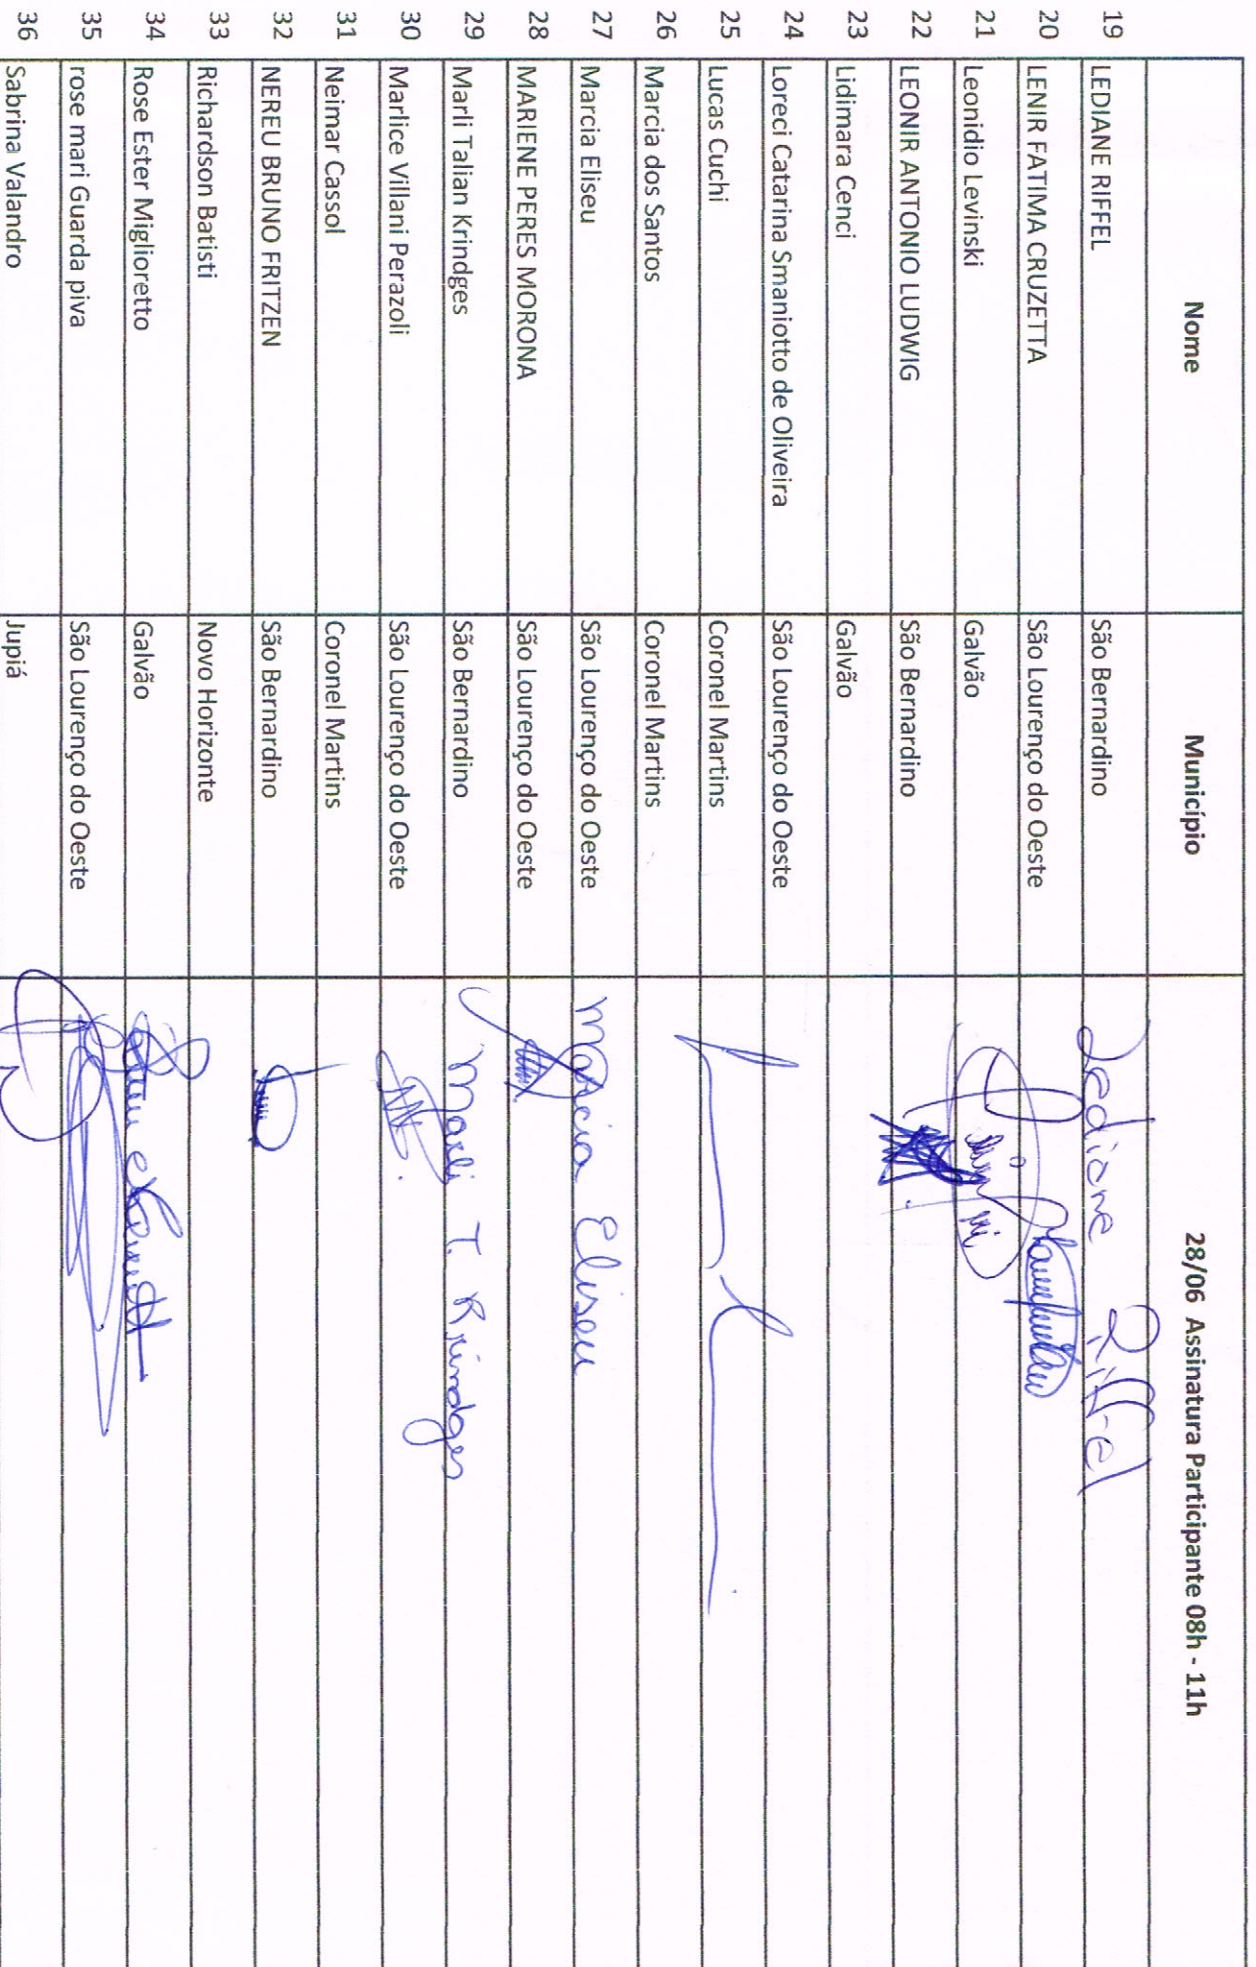 Nome Município 28/06 Assinatura Participante 08h - 11h
19 LEDIANE RIFFEL São Bernardino Lediane Riffel
20 LENIR FATIMA CRUZETTA São Lourenço do Oeste
21 Leonidio Levinski Galvão
22 LEONIR ANTONIO LUDWIG São Bernardino
23 Lidimara Cenci Galvão
24 Loreci Catarina Smaniotto de Oliveira São Lourenço do Oeste
25 Lucas Cuchi Coronel Martins
26 Marcia dos Santos Coronel Martins
27 Marcia Eliseu São Lourenço do Oeste Marcia Eliseu
28 MARIENE PERES MORONA São Lourenço do Oeste
29 Marli Talian Krindges São Bernardino Marli T. Krindges
30 Marlice Villani Perazoli São Lourenço do Oeste
31 Neimar Cassol Coronel Martins
32 NEREU BRUNO FRITZEN São Bernardino
33 Richardson Batisti Novo Horizonte
34 Rose Ester Miglioretto Galvão
35 rose mari Guarda piva São Lourenço do Oeste
36 Sabrina Valandro Jupiá